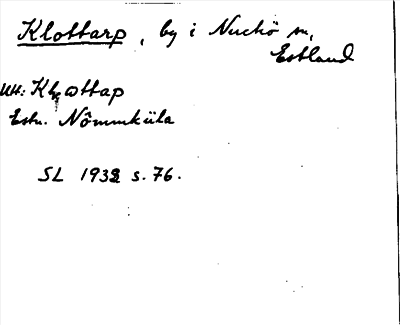 Klottarp, by i Nuckö sn,
Estland
Utt: Klottap
Estn. Nõmmküla
SL 1932 s. 76.